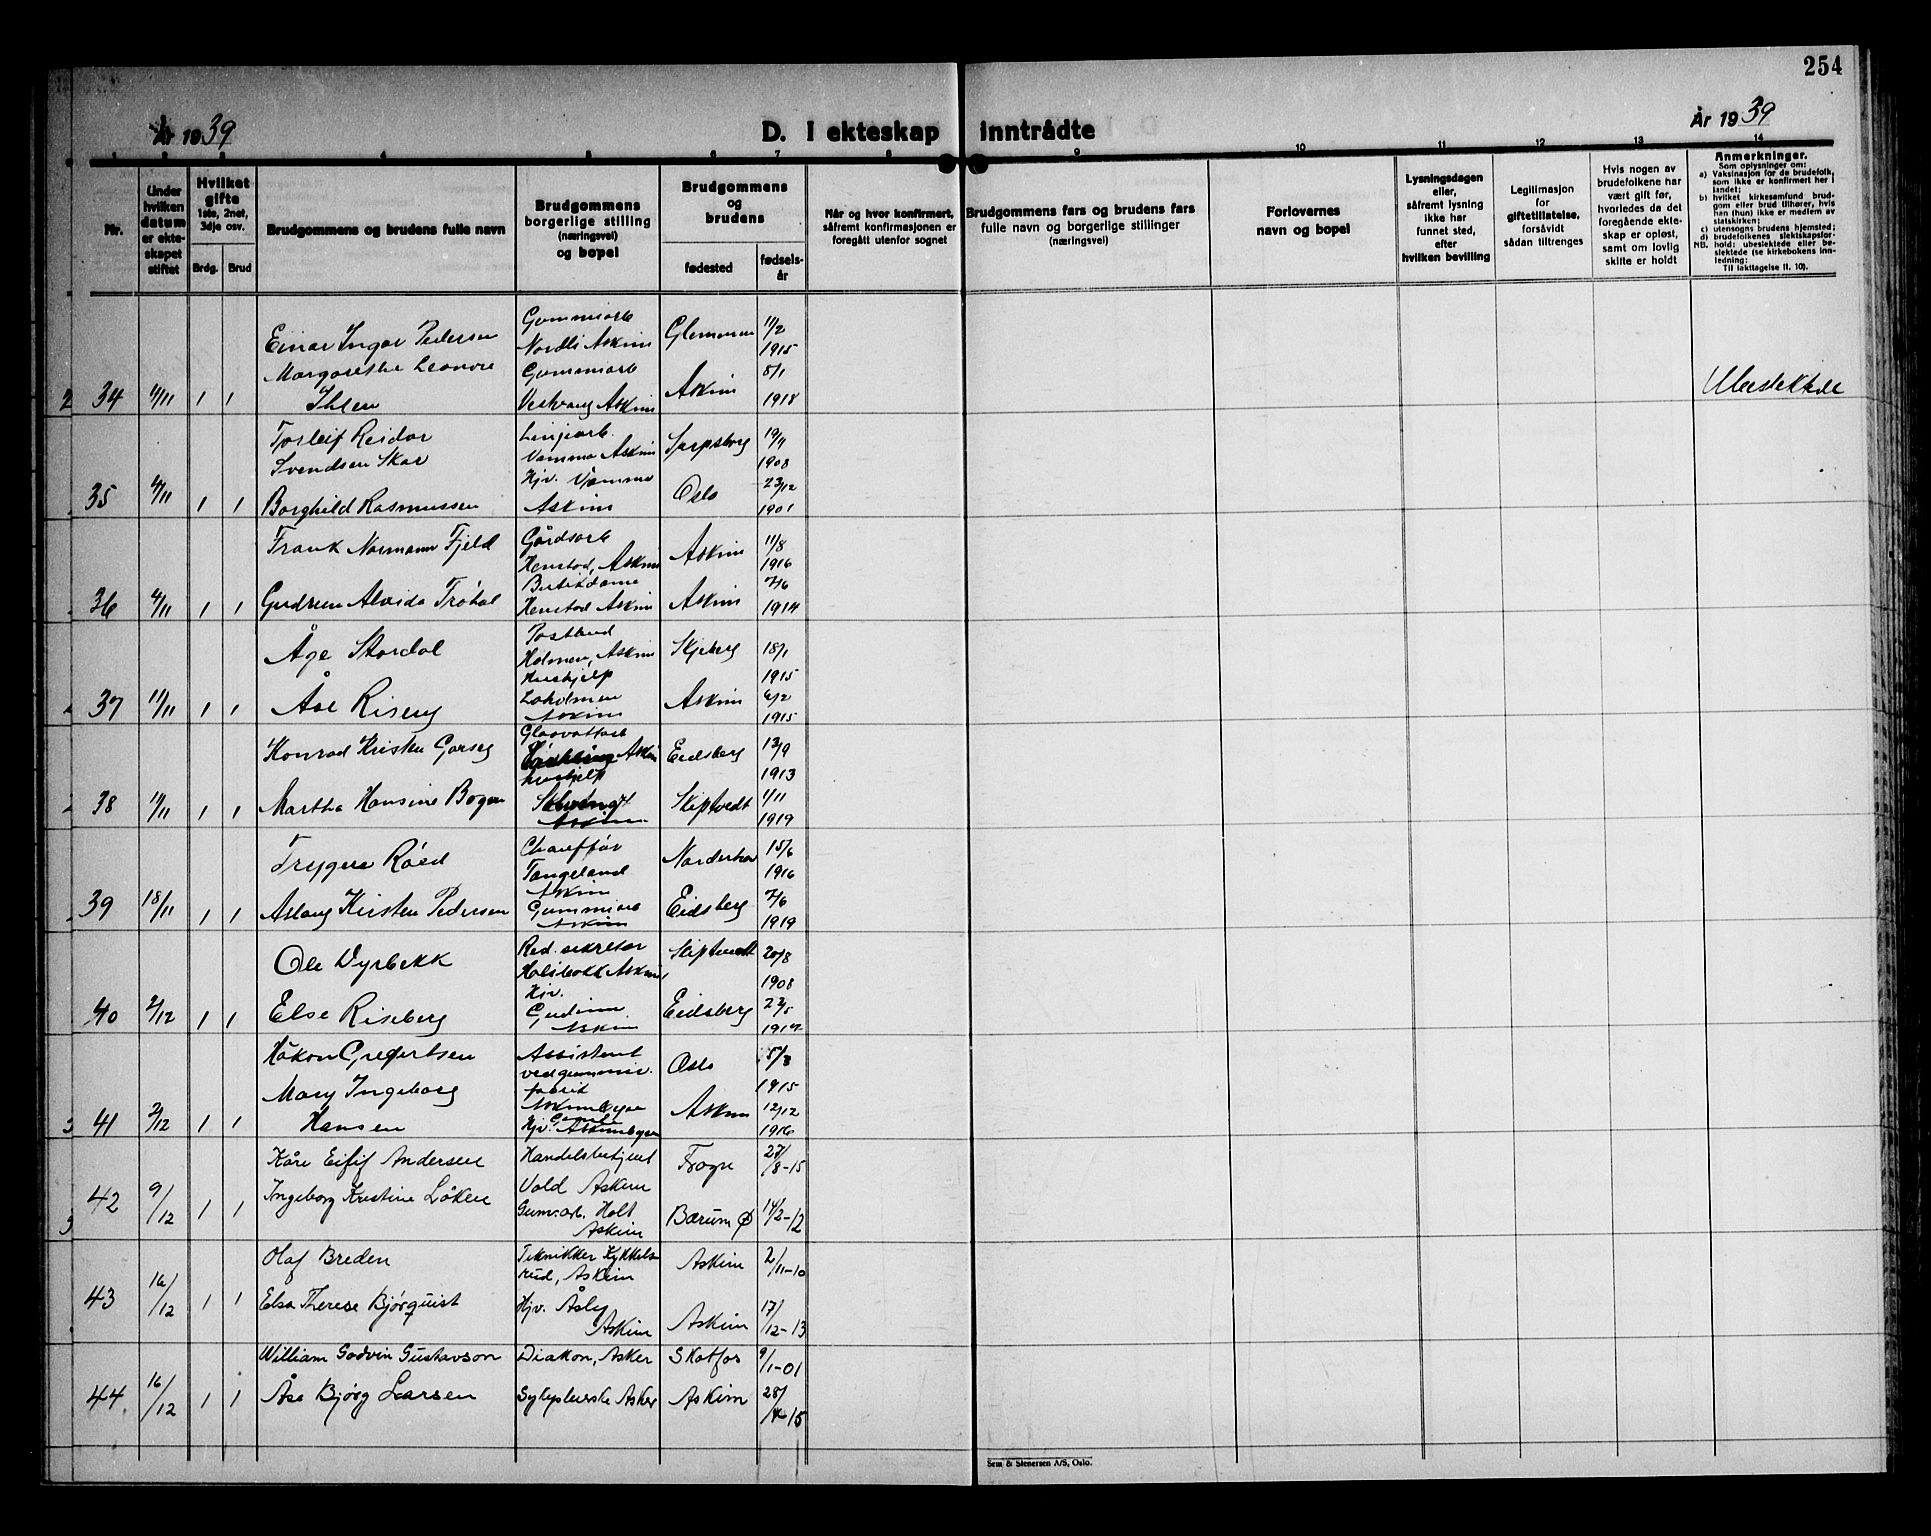 254
År 1939
D. I ekteskap inntrådte
År 1939
1 2 3 4 5 6 7 8 9 10 11 12 13 14
Nr.
Under hvilken datum er ekteskapet stiftet
Hvilket gifte
1ste, 2net, 3dje osv.
Brdg. Brud
Brudgommens og brudens fulle navn
Brudgommens borgerlige stilling (næringsvei) og bopel
Brudgommens og brudens
fødested
fødselsår
Når og hvor konfirmert, såfremt konfirmasjonen er foregått utenfor sognet
Brudgommens fars og brudens fars fulle navn og borgerlige stillinger (næringsvei)
Forlovernes navn og bopel
Lysningsdagen eller, såfremt lysning ikke har funnet sted, efter hvilken bevilling
Legitimasjon for giftetillatelse, forsåvidt sådan tiltrenges
Hvis nogen av brudefolkene har vært gift før, hvorledes da det foregående ekteskap er opløst, samt om lovlig skifte er holdt
Anmerkninger.
Som oplysninger om:
a) Vaksinasjon for de brudefolk, som ikke er konfirmert her i landet;
b) hvilket kirkesamfund brudgom eller brud tilhører, hvis han (hun) ikke er medlem av statskirken;
c) utensogns brudens hjemsted;
d) brudefolkenes slektskapsforhold: ubeslektede eller beslektede (se kirkebokens innledning:
NB. Til iakttagelse II. 10).
34 4/11 1 1
Einar Ingar Pedersen
Gummiarb Nordli Askim
Glemmen
11/2 1915
Margarethe Leonore Ihlen
Gummiarb Askim
Askim
5/1 1918
Ubeslektede
35 4/11 1 1
Torleif Reidar Svendsen Skar
Linjearb. Vamma Askim
Sarpsborg
19/11 1908
Borghild Rasmussen
Hjv. Vamma Askim
Oslo
23/12 1901
36 4/11 1 1
Frank Normann Fjeld
Gårdsarb Henstad, Askim
Askim
11/8 1916
Gudrun Alvida Tröhol
Butikdame Henstad Askim
Askim
7/6 1914
37 11/11 1 1
Åge Stordal
Postbud Holmen, Askim
Skjeberg
18/1 1915
Åse Riseng
Hushjelp Askim
Askim
6/2 1915
38 11/11 1 1
Konrad Kristen Garseg
Glassvattarb Askim
Eidsberg
13/9 1913
Martha Hansine Bogen
hushjelp Askim
Skiptvedt
1/11 1919
39 18/11 1 1
Trygve Röed
Chauffør Tangeland Askim
Norderhov
15/6 1916
Aslaug Kirsten Pedersen
Gummiarb Askim
Eidsberg
7/6 1919
40 2/12 1 1
Ole Dyrbekk
Red. sekretær Askim
Skiptvedt
20/8 1908
Else Riseberg
Hjv. Gudim Askim
Eidsberg
23/5
41 2/12 1 1
Håkon Gregertsen
Assistent ved gummivfabrik Askimbyen
Oslo
5/3 1915
Mary Ingeborg Hansen
Hjv. Askimbyen
Askim
12/12 1916
42 9/12 1 1
Kåre Eilif Andersen
Handelsbetjent Vold Askim
Frogn
27/8-15
Ingeborg Kristine Løken
Gum.arb. Holt Askim
Bærum
14/2-12
43 16/12 1 1
Olaf Breden
Tekniker Kykkelsrud, Askim
Askim
2/11-10
Elsa Therese Bjørquist
Hjv. Åsly Askim
Askim
17/12-13
44. 16/12 1 1
William Godvin Gustavson
Diakon, Asker
Skotfos
9/1-01
Åse Bjørg Larsen
Sykepleierske Asker
Askim
28/ -15
Sem & Stenersen A/S, Oslo.